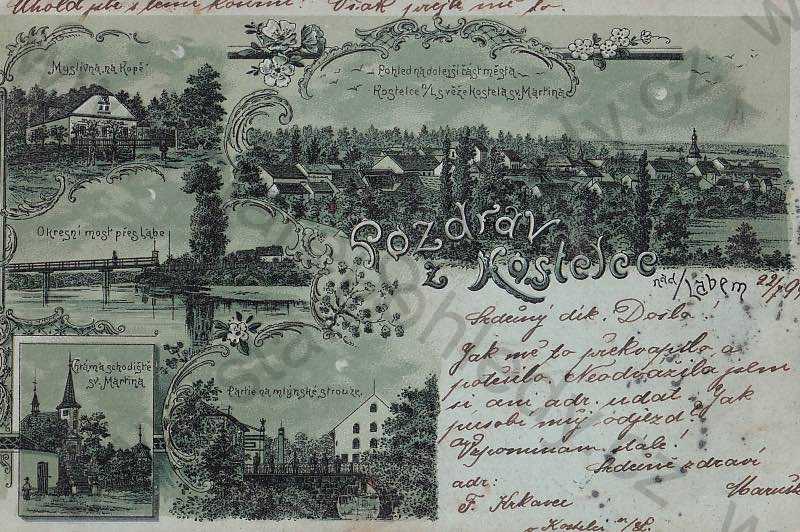 Uhodl jste s temi koními! Však přejte mé to.
Myslivna na Kopě.
Pohled na dolejší část města
Kostelce n/L s věže kostela sv. Martina
Okresní most přes Labe
Pozdrav
z Kostelce
nad/Labem
Chrám a schodiště
sv. Martina
Partie na mlýnské strouze.
Srdečný dík. Došlo!
Jak mě to překvapilo a
potěšilo. Neodvážila jsem
si ani adr. udat. Jak
působí můj odjezd?
Vzpomínám stále!
Srdečné zdraví
adr:
F. Krkavec
v Kostelci n/L.